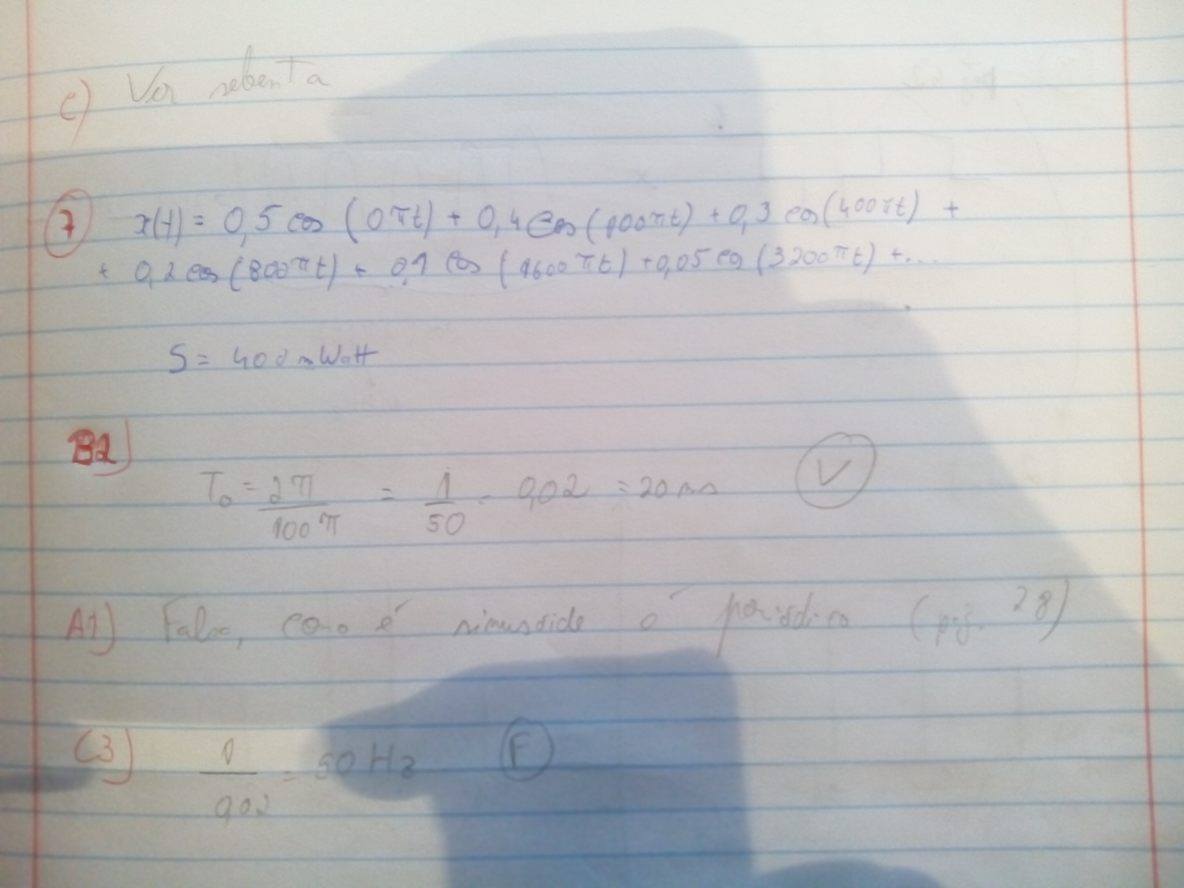 c) Ver sebenta
7 x(t) = 0,5 cos (0πt) + 0,4 cos (100πt) + 0,3 cos (400πt) +
+ 0,2 cos (800πt) + 0,1 cos (1600πt) + 0,05 cos (3200πt) + ...
S = 400 mWatt
B2) To = 2π/100π = 1/50 = 0,02 = 20 ms V
A1) Falso, como é sinusoide é periódico (pág. 28)
C3) 1/0,02 = 50 Hz F